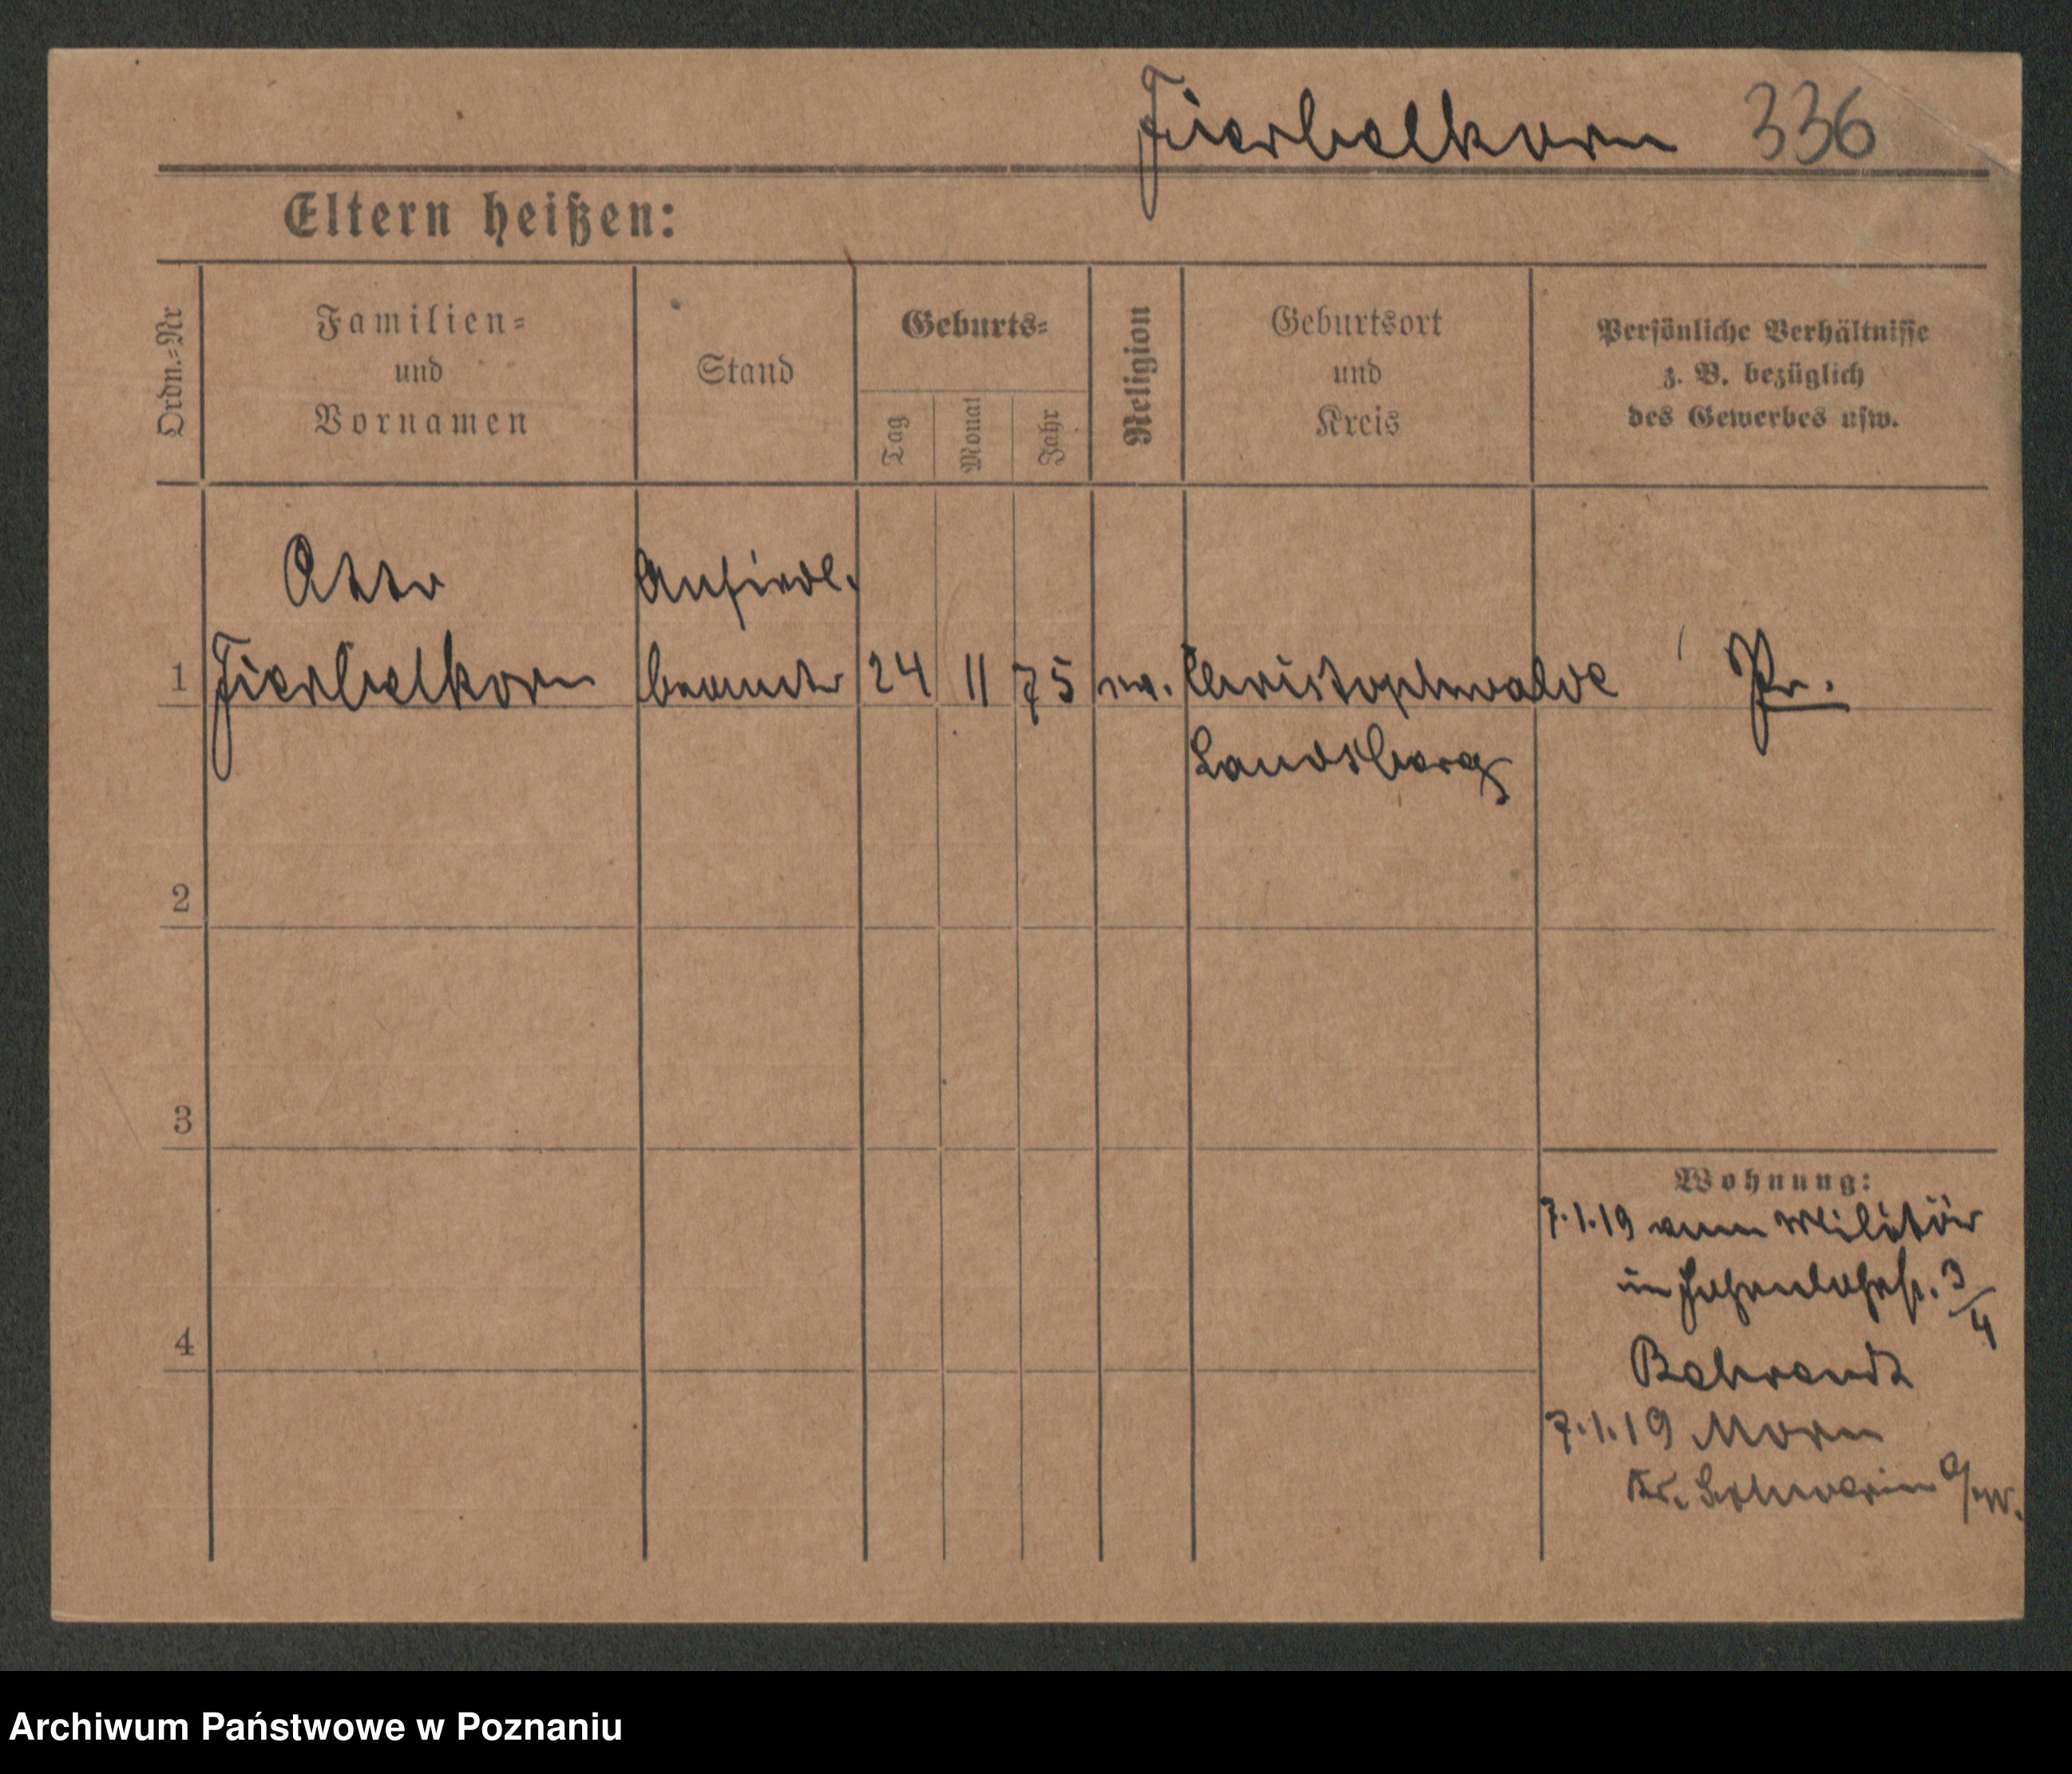 Fierbelkorn 336
Eltern heißen:
Ordn.=Nr
Familien=
und
Vornamen
Stand
Geburts=
Tag
Monat
Jahr
Religion
Geburtsort
und
Kreis
Persönliche Verhältnisse
z. B. bezüglich
des Gewerbes usw.
Otto Ansiedl.
1 Fierbelkorn beamter 24 11 75 ev. Christophswalde Pr.
Landsberg
2
3
Wohnung:
7.1.19 vom Militär
in 3/4
4
Behrendt
7.1.19 Morrn
Kr. Schwerin a/W.
Archiwum Państwowe w Poznaniu